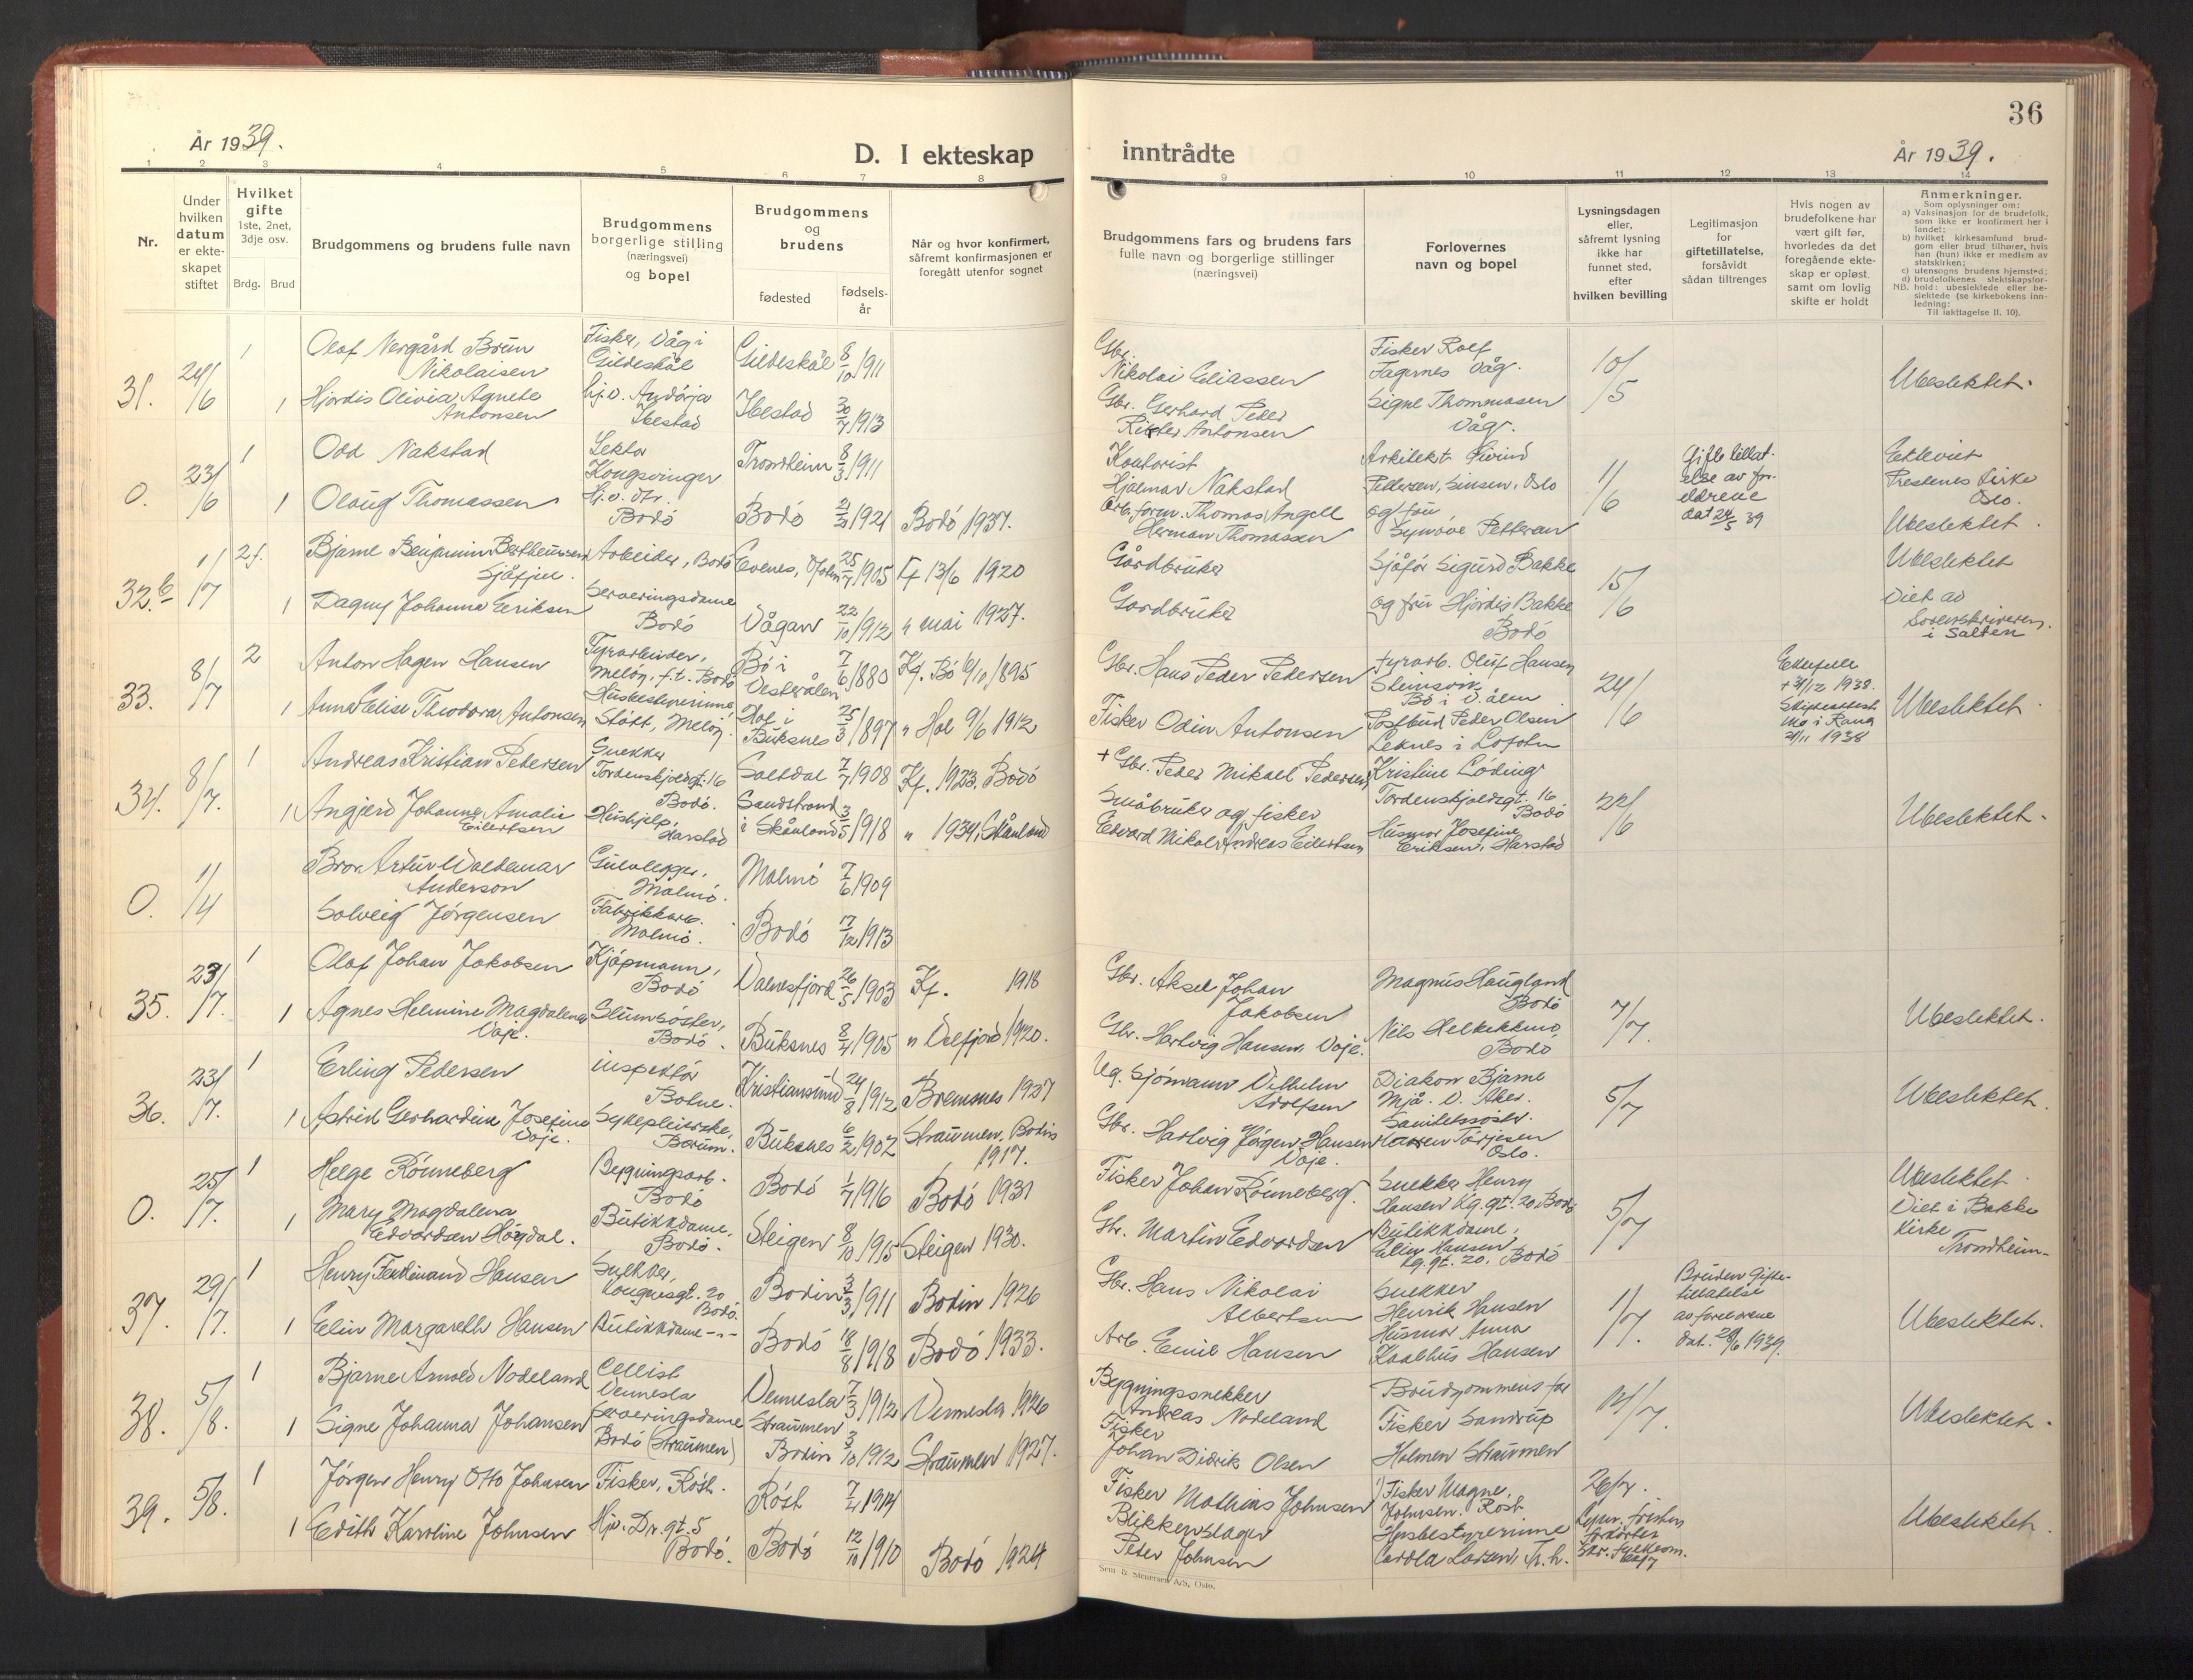 36
År 1939.
D. I ekteskap
inntrådte
År 1939.
1 2 3 4 5 6 7 8 9 10 11 12 13 14
Nr.
Under hvilken datum er ekteskapet stiftet
Hvilket gifte 1ste, 2net, 3dje osv.
Brdg. Brud
Brudgommens og brudens fulle navn
Brudgommens borgerlige stilling (næringsvei) og bopel
Brudgommens og brudens
fødested
fødselsår
Når og hvor konfirmert, såfremt konfirmasjonen er foregått utenfor sognet
Brudgommens fars og brudens fars fulle navn og borgerlige stillinger (næringsvei)
Forlovernes navn og bopel
Lysningsdagen eller, såfremt lysning ikke har funnet sted, efter hvilken bevilling
Legitimasjon for giftetillatelse, forsåvidt sådan tiltrenges
Hvis nogen av brudefolkene har vært gift før, hvorledes da det foregående ekteskap er opløst, samt om lovlig skifte er holdt
Anmerkninger.
Som oplysninger om:
a) Vaksinasjon for de brudefolk, som ikke er konfirmert her i landet;
b) hvilket kirkesamfund brudgom eller brud tilhører, hvis han (hun) ikke er medlem av statskirken;
c) utensogns brudens hjemsted;
d) brudefolkenes slektskapsforhold: ubeslektede eller beslektede (se kirkebokens innledning:
NB. Til iakttagelse II. 10).
31. 24/6 1 Olaf Norgård Brun Nikolaisen Fisker, Våg i Gildeskål Gildeskål 8/10 1911 Gbr. Nikolai Eliassen Fisker Rolf Fagernes Våg. 10/5 Ubeslektet.
1 Hjørdis Olivia Agnete Antonsen Hj.v. Andørja Ibestad Ibestad 30/7 1913 Gbr. Gerhard Peder Antonsen Signe Thommasen Våg.
0. 23/6 1 Odd Nakstad Lektor Kongsvinger Trondheim 8/3 1911 Kontorist Hjalmar Nakstad Arkitekt Eivind Pettersen, Sinsen, Oslo 11/6 Giftetillatelse av foreldrene dat 24/5 39 Ektevict Prestenes Kirke Oslo.
1 Olaug Thomassen Hj.v. dtr. Bodø Bodø 2/3 1921 Bodø 1937. Arb.form. Thomas Angell Herman Thomassen og fru Synnøve Pettersen Ubeslektet.
32.b 1/7 2f. Bjarne Benjamin Bertheussen Sjåfjell. Arbeider, Bodø Evenes, Ofoten 25/7 1905 Kf 13/6 1920 Gårdbruker Sjåfør Sigurd Bakke 15/6 Ubeslektet
1 Dagny Johanna Eriksen Serveringsdame Bodø Vågan 22/10 1912 " mai 1927. Gårdbruker og fru Hjørdis Bakke Bodø Viet av Sorenskriveren i Salten
33. 8/7 2 Anton Hagen Hansen Fyrarbeider, Meløy, f.t. Bodø Bø i Vesterålen 7/6 1880 Kf. Bø 6/10 1895 Gbr. Hans Peder Pedersen Fyrarb. Oluf Hansen Steinsvik Bø i V.ålen 24/6 Ektefelle + 31/12 1938. Skifteattest Mo i Rana 21/11 1938 Ubeslektet.
1 Anna Elise Theodora Antonsen Husbestyrerinne, Støtt, Meløy. Hol i Buksnes 25/3 1897 " Hol 9/6 1912 Fisker Odin Antonsen Postbud Peder Olsen Leknes i Lofoten
34. 8/7. 1 Andreas Kristian Pedersen Snekker Tordenskjoldsgt. 16 Bodø. Saltdal 7/7 1908 Kf. 1923. Bodø + Gbr. Peder Mikael Pedersen Kristine Løding Tordenskjoldsgt. 16 Bodø 22/6 Ubeslektet.
1 Angjerd Johanne Amalie Eilertsen Hushjelp, Harstad Sandstrand i Skånland 3/5 1918 " 1934, Skånland Småbruker og fisker Edvard Mikal Andreas Eilertsen Husmor Josefine Eriksen, Harstad
0. 1/4 Bror Artur Waldemar Anderson Gulvlegger, Malmø. Malmø 7/6 1909
Solveig Jørgensen Fabrikkarb. Malmø. Bodø 17/12 1913
35. 23/7. 1 Olaf Johan Jakobsen Kjøpmann, Bodø Valnesfjord 26/5 1903 Kf. 1918 Gbr. Aksel Johan Jakobsen Magnus Haugland Bodø 7/7. Ubeslektet.
1 Agnes Helmine Magdalena Voje. Slumsøster, Bodø. Buksnes 8/4 1905 " Velfjord 1920. Gbr. Hartvig Hansen Voje. Nils Bodø
36. 23/7. 1 Erling Pedersen inspektør Botne. Kristiansund 24/8 1912 Bremsnes 1927 Ug. Sjømann Vilhelm Adolfsen Diakon Bjarne Mjå. V. Aker. 5/7 Ubeslektet.
1 Astrid Gerhardine Josefine Voje. Sykepleierske, Bærum. Buksnes 6/2 1902 Straumen, Bodin 1917. Gbr. Hartvig Jørgen Hansen Voje. Sanitetssøster. Karen Tørjesen Oslo.
0. 25/7. 1 Helge Rønneberg Bygningsarb. Bodø Bodø 1/7 1916 Bodø 1931 Fisker Johan Rønneberg. Snekker Henry Hansen Kg.gt. 20, Bodø 5/7 Ubeslektet.
1 Mary Magdalena Edvardsen Høgdal. Butikkdame, Bodø. Steigen 8/10 1915 Steigen 1930. Gbr. Martin Edvardsen Butikkdame, Elin Hansen, Kg.gt. 20. Bodø Viet i Bakke Kirke Trondheim
37. 29/7. 1 Henry Ferdinand Hansen Snekker, Kongensgt. 20 Bodø. Bodin 3/3 1911 Bodin 1926 Gbr. Hans Nikolai Albertsen Snekker Henrik Hansen 1/7. Bruden Giftetillatelse av foreldrene dat. 28/6 1939. Ubeslektet.
1 Elin Margareth Hansen Butikkdame -"- Bodø 18/8 1918 Bodø 1933. Arb. Emil Hansen Husmor Anna Kaalhus Hansen
38. 5/8. 1 Bjarne Arnold Nodeland Cellist Vennesla Vennesla 7/3 1912 Vennesla 1926 Bygningssnekker Andreas Nodeland Brudgommens far 14/7. Ubeslektet.
1 Signe Johanna Johansen Serveringsdame Bodø (Straumen) Straumen Bodin 3/10 1912 Straumen 1927. Fisker Johan Didrik Olsen Fisker Sandrup Holmen Straumen
39. 5/8. 1 Jørgen Henry Otto Johnsen Fisker, Røst. Røst 7/4 1914 Fisker Mathias Johnsen 1) Fisker Magne Johnsen. Røst. 26/7. Ubeslektet.
1 Edith Karoline Johnsen Hjv. Dr.gt. 5 Bodø. Bodø 12/10 1910 Bodø 1924 Blikkenslager Peter Johnsen Husbestyrerinne Carola Larsen, s.h.
Sem & Stenersen A/S, Oslo.